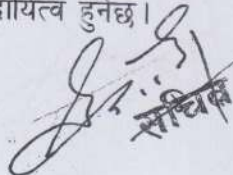 दायित्व हुनेछ।
सचिव